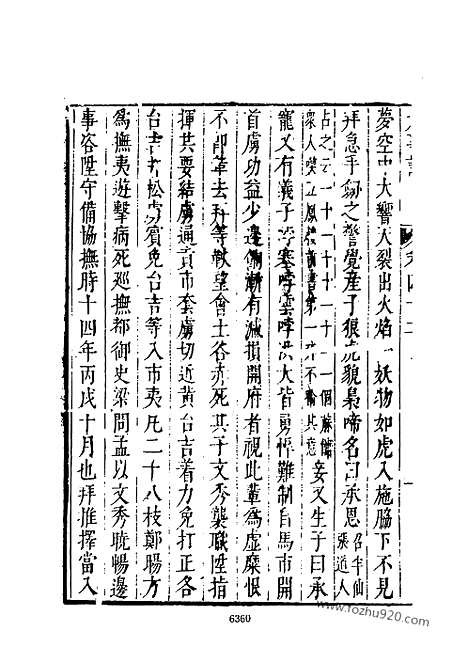 夢空中大響天裂出火焰一妖物如虎入施脇下不見
拜急手劒之警覺産子狠虎貌梟啼名曰承恩召半仙張道人
占之云一十二十一十一個
衆人喫五鳳樓前第一才不其意妾又生子曰承
寵又有義子哱塞哱雲哱洪大皆勇悍難制自馬市開
首虜功益少邊餉漸有減損開府者視此輩為虛糜恨
不即革去拜等軟望會土谷赤死其子文秀襲職陞指
揮共要結虜通貢市套虜切近黃台吉着力兔打正各
台吉并松虜賓兔台吉等入市夷凡二十八枝鄭暘方
為撫夷遊擊病死巡撫都御史梁問孟以文秀曉暢邊
事咨陞守備協撫時十四年丙戌十月也拜推擇當入
6360
www.fozhu920.com